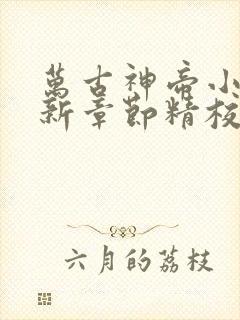 萬古神帝小
新章節精校
六月的荔枝